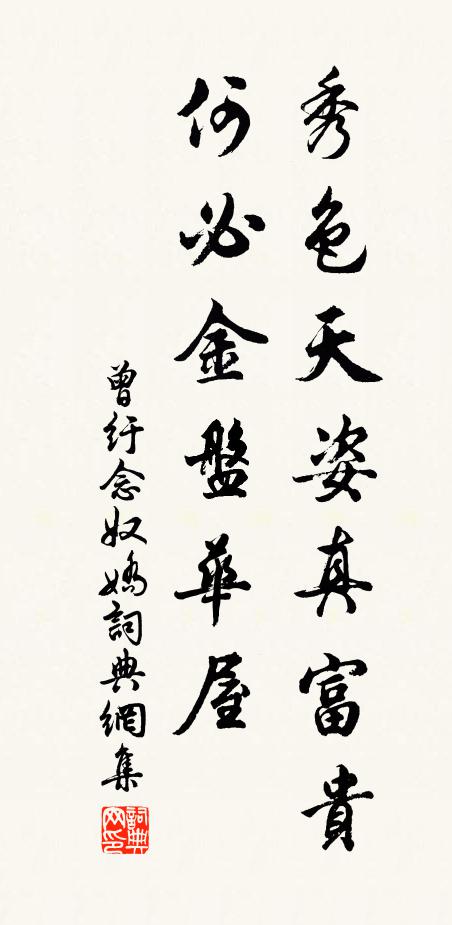 秀色天姿真富貴
何必金盤華屋
曾紆念奴嬌詞典網集
詞典網印